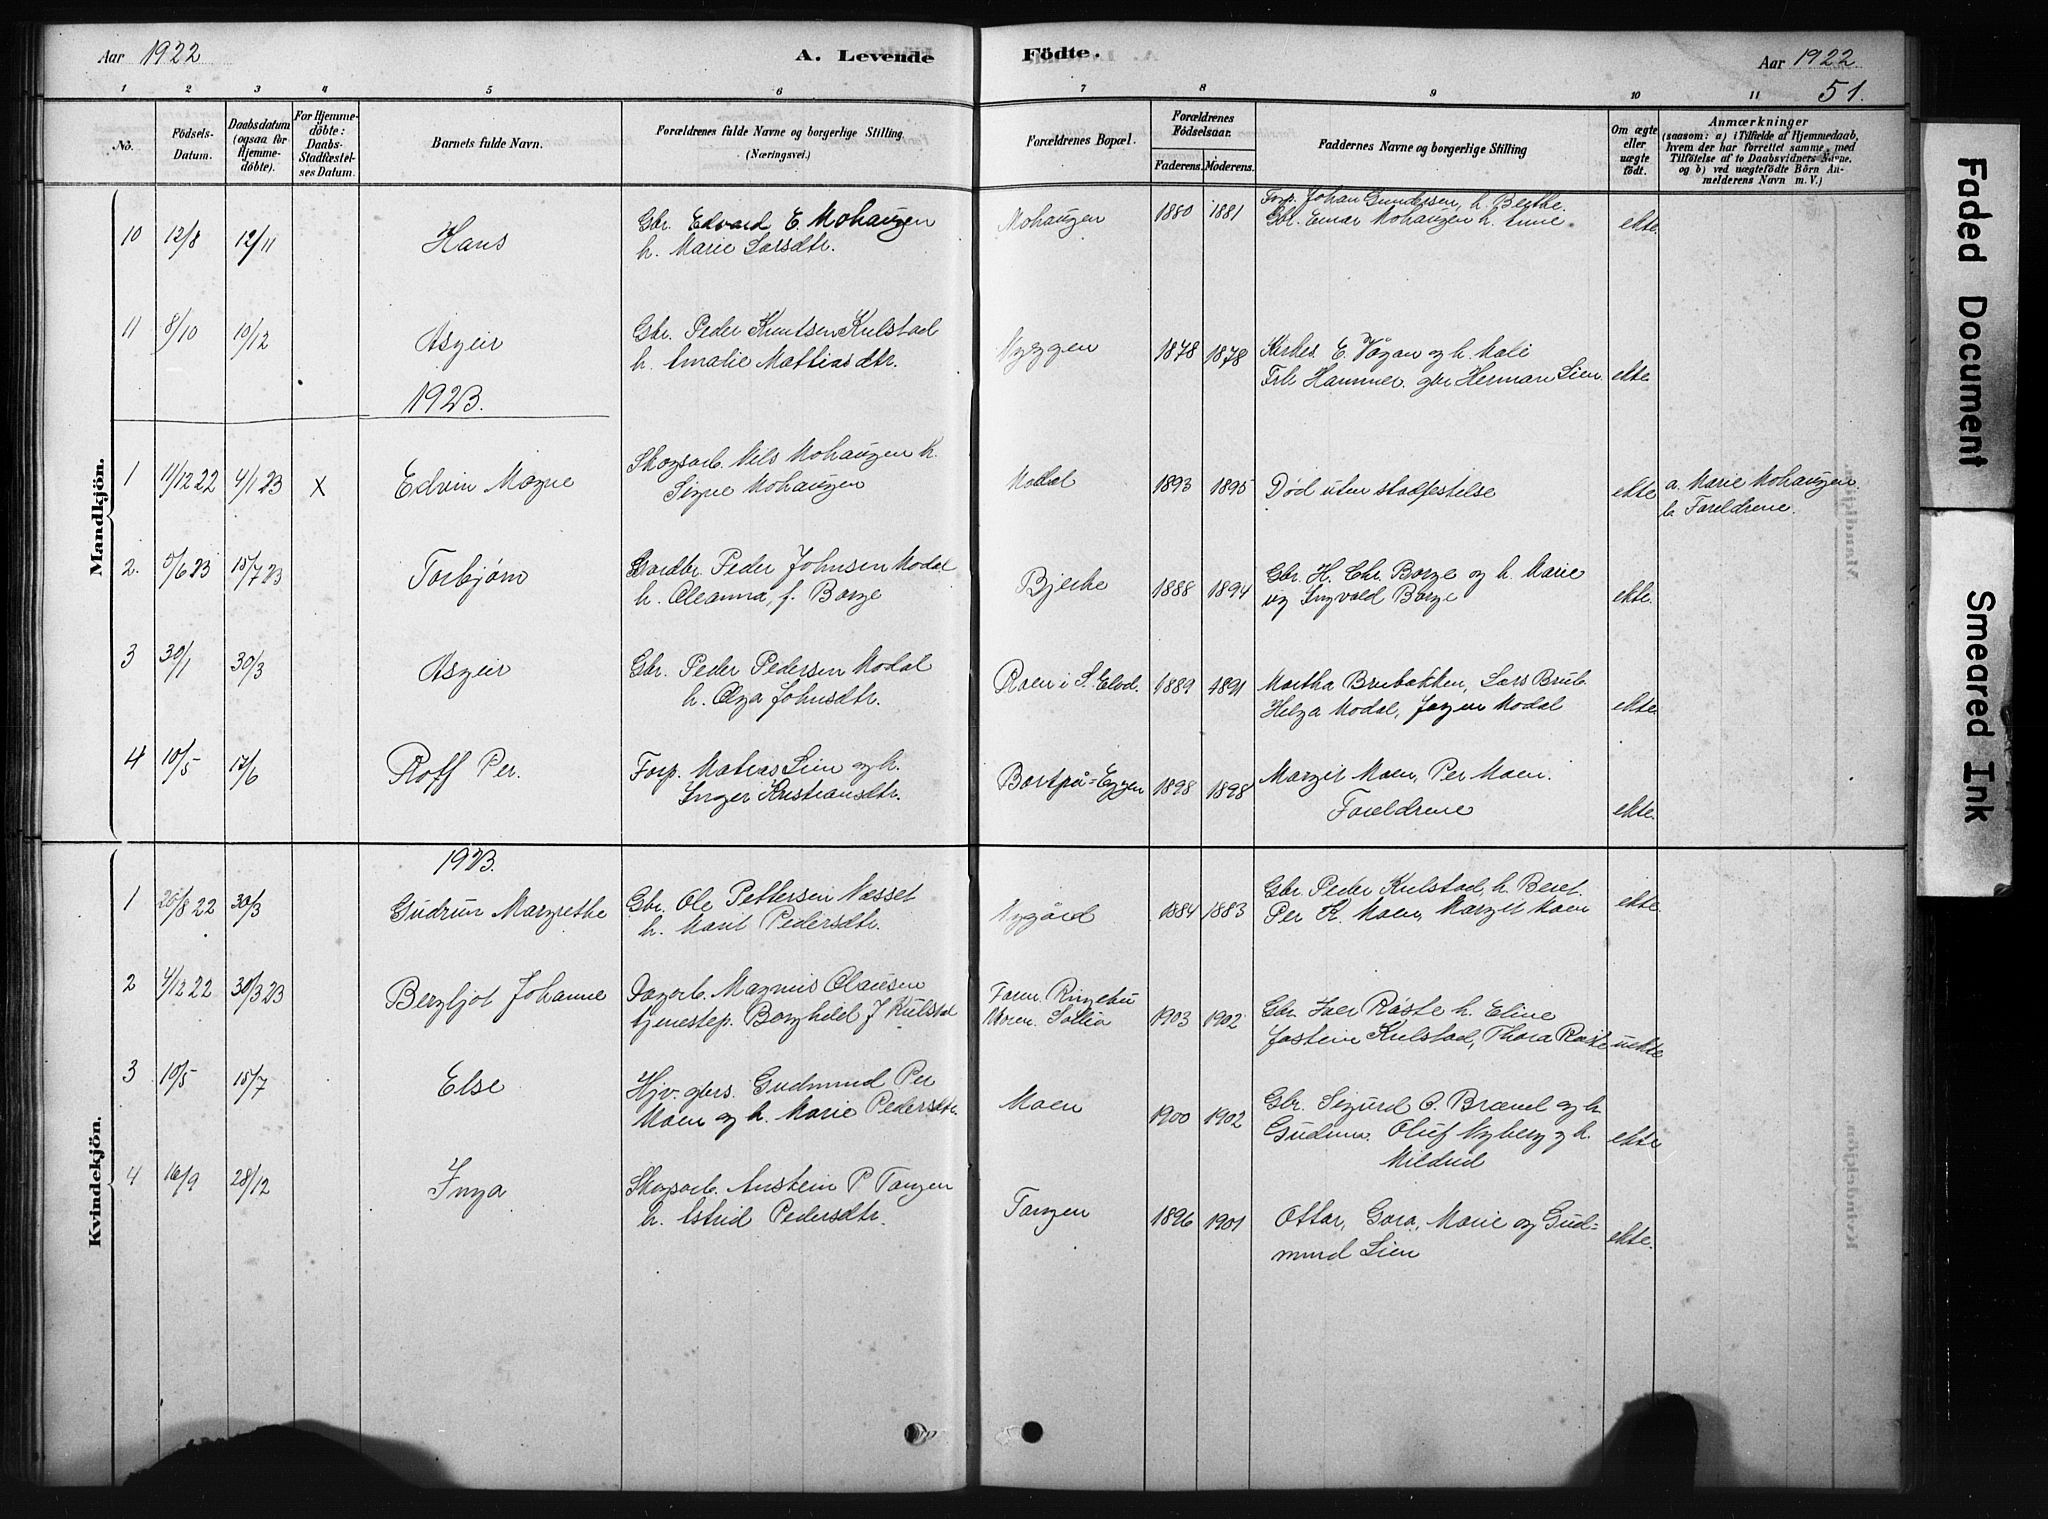 Aar 1922
A. Levende Födte.
Aar 1922
51.
1 2 3 4 5 6 7 8 9 10 11
No.
Födsels-Datum.
Daabsdatum (ogsaa for Hjemmedöbte).
For Hjemmedöbte: Daabs-Stadfæstelses Datum.
Barnets fulde Navn.
Forældrenes fulde Navne og borgerlige Stilling. (Næringsvei.)
Forældrenes Bopæl.
Forældrenes Födselsaar.
Faderens. Moderens.
Faddernes Navne og borgerlige Stilling
Om ægte eller uægte født.
Anmærkninger
(saasom: a) i Tilfælde af Hjemmedaab, hvem der har forrettet samme, med Tilføielse af to Daabsvidners Navne. og b) ved uægtefödte Börn Anmelderens Navn m. V.)
Mandkjön.
10 12/8 12/11 Hans
Gbr. Edvard E. Mohaugen
h. Marie Larsdtr.
Mohaugen 1880 1881
Forp. Johan Gundersen, h. Berthe.
Gbr. Einar Mohaugen h. Anne.
ekte.
11 8/10 10/12 Asgeir
Gbr. Peder Knutsen Kulstad
h. Amalie Mattiasdtr.
Nyeggen 1878 1878
Kirkes. E. Vågan og h. Mali
Frk. Hammer. gbr Herman Lien.
ekte
1923.
1 11/12 22 4/1 23 x Edvin Magne
Skogsarb. Nils Mohaugen h.
Signe Mohaugen
Modal 1893 1895
Död uten stadfestelse
ekte
a. Marie Mohaugen
b. Foreldrene.
2. 5/6 23 15/7 23 Torbjørn
Gardbr. Peder Johnsen Modal
h. Oleanna, f. Borge
Bjerke 1888 1894
Gbr. H. Chr. Borge og h. Marie
og Ingvald Borge
ekte.
3 30/1 30/3 Asgeir
Gbr. Peder Pedersen Modal
h. Olga Johnsdtr.
Moen i S. Elvd. 1889 1891
Martha Brubakken, Lars Brub.
Helga Modal, Jørgen Modal
ekte.
4 10/5 17/6 Rolf Per.
Forp. Matias Lien og h.
Inger Kristiansdtr.
Bortpå-Eggen 1898 1898
Margit Moen, Per Moen.
Foreldrene
ekte.
Kvindekjön.
1923.
1 26/8 22 30/3 Gudrun Margrethe
Gbr. Ole Pettersen Nesset
h. Marit Pedersdtr.
Nygård 1884 1883
Gbr. Peder Kulstad, h. Beret.
Per K. Moen, Margit Moen
ekte.
2 4/12 22 30/3 23 Bergljot Johanne
Dagarb. Magnus Olausen
tjenestep. Borghild J Kulstad
Faren. Ringebu
Moren. Sollia 1903 1902
Gbr. Iver Røste h. Eline
Jostein Kulstad, Thora Røste
uekte
3 10/5 15/7 Else
Hjv. gbrs. Gudmund Per
Moen og h. Marie Pedersdtr.
Moen 1900 1902
Gbr. Sigurd O. Brænd og h.
Gudrun. Oluf Nyberg og h.
Mildrid
ekte
4 16/9 28/12 Inga
Skogsarb. Anstein P Tangen
h. Astrid Pedersdtr.
Tangen 1896 1901
Ottar, Gora, Marie og Gud-
mund Lien
ekte.
Faded Document
Smeared Ink